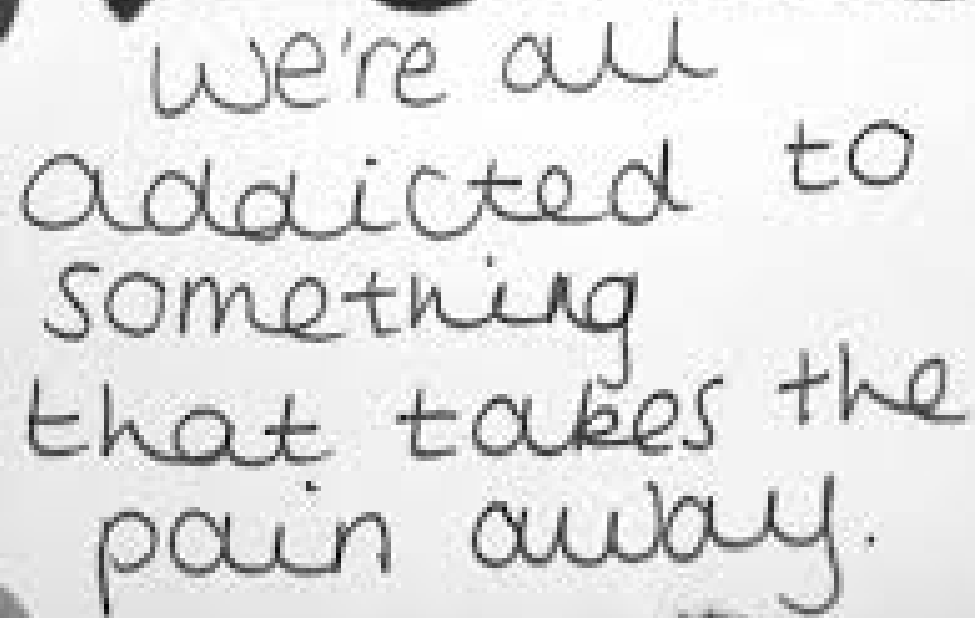 We're all
addicted to
something
that takes the
pain away.